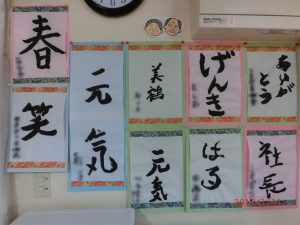 春
笑
元気
美鶴
元気
げんき
はる
ありがとう
社長